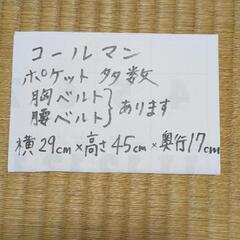 コールマン
ポケット 多数
胸ベルト
腰ベルト } あります
横29cm×高さ45cm×奥行17cm